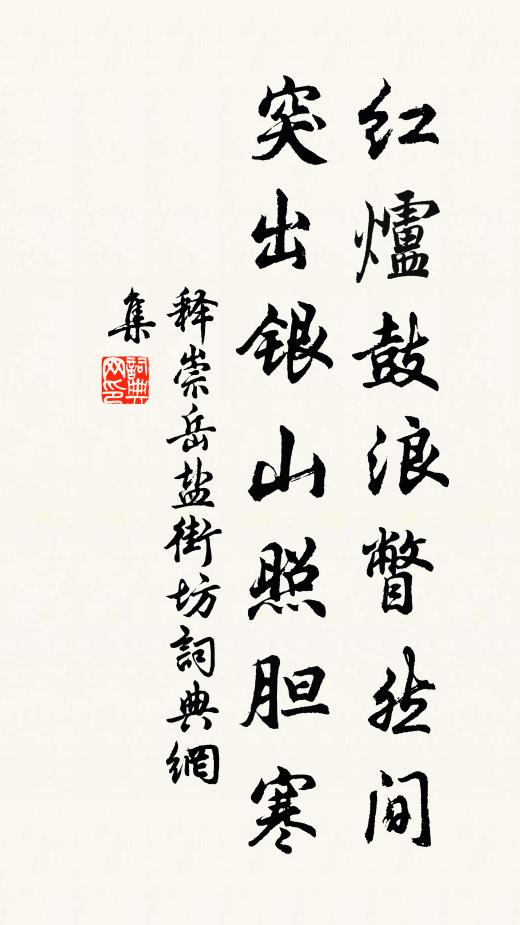 红爐鼓浪瞥然间
突出银山照胆寒
释崇岳盐街坊詞典網
集
詞典网印